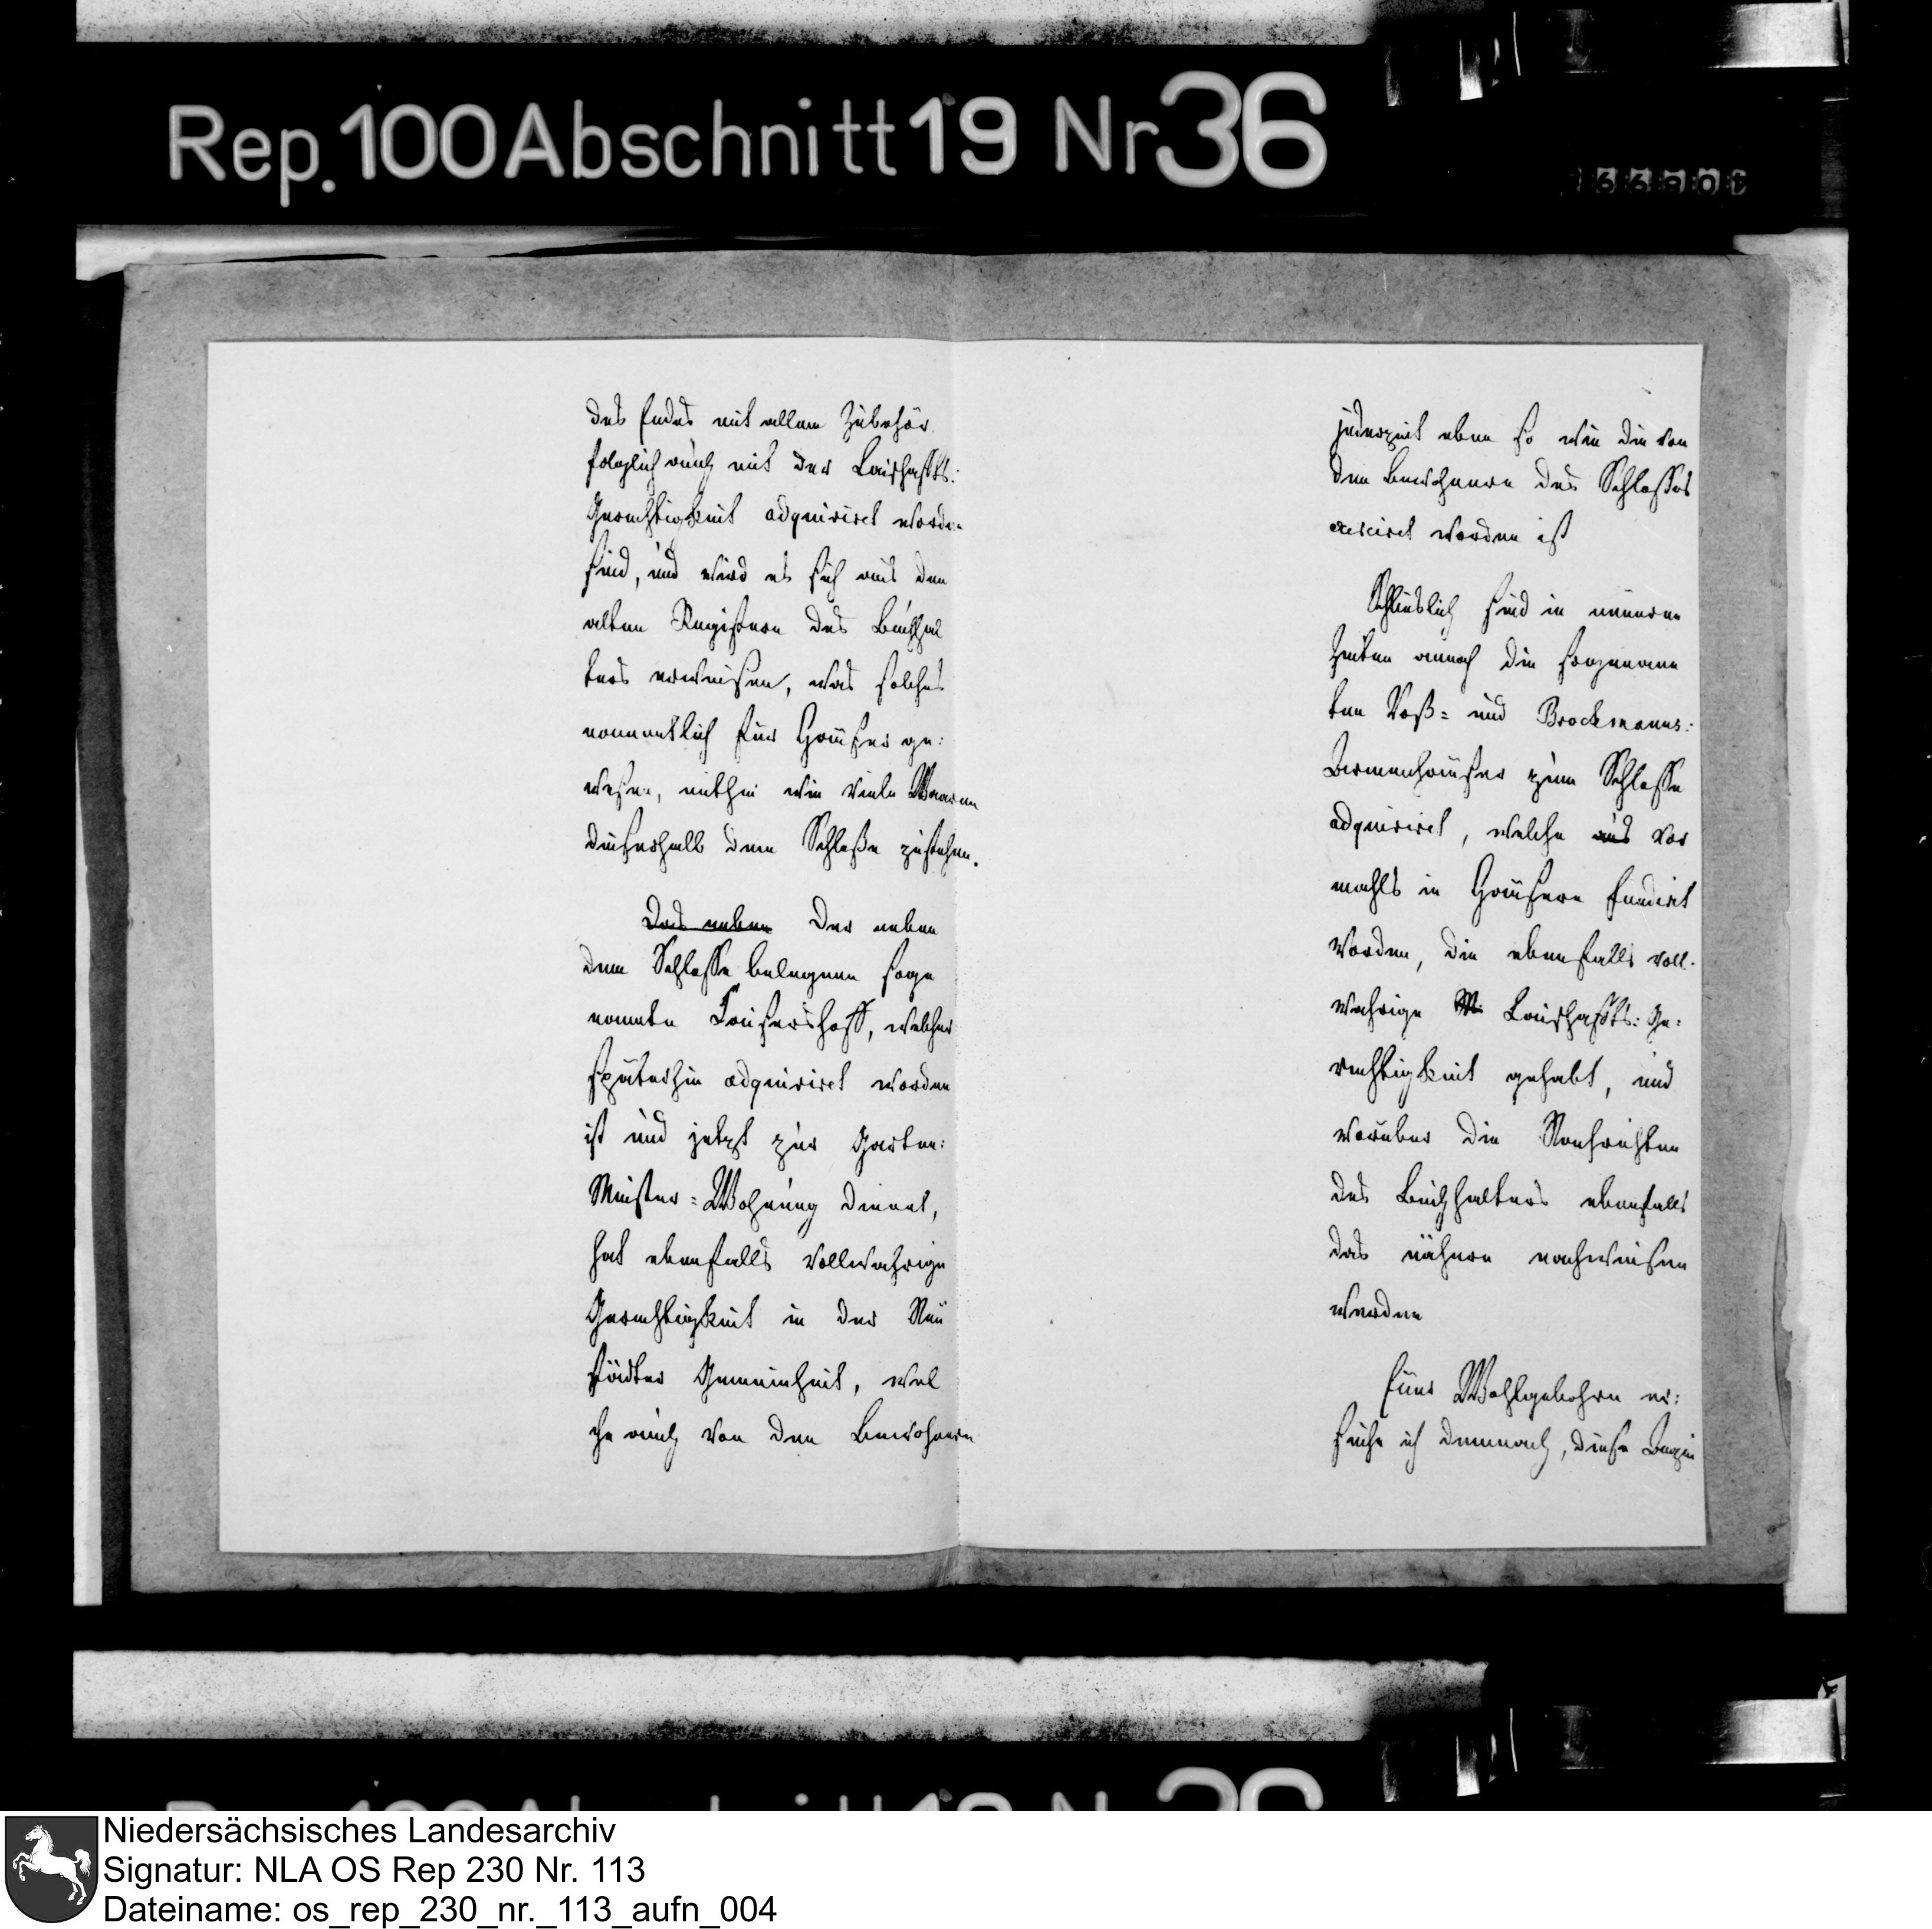 Rep. 100 Abschnitt 19 Nr 36
des Endes mit allem Zubehör
folglich auch mit der Laischafts:
Gerechtigkeit adquiriret worden
sind, und wird es sich aus den
alten Registern des Buchhal
ters erweisen, was solches
namentlich für Häuser ge:
wesen, mithin wie viele Waaren
dieserhalb dem Schloße zustehen.
Das neben Der neben
dem Schlosse belegene soge
nannte hoff, welcher
späterhin adquiriret worden
ist und jetzt zur Garten:
Meister = Wohnung dienet,
hat ebenfalls vollwahrige
Gerechtigkeit in der Neu
städter Gemeinheit, wel
che auch von den Bewohnern
jederzeit eben so wie die von
den Bewohnern des Schlosses
exerciret worden ist
Schlieslich sind in neueren
Zeiten annoch die sogenann
ten Voß= und Brockmanns:
Armenhäuser zum Schlosse
adquiriret, welche aus vor
mahls in Häusern fundirt
worden, die ebenfalls voll-
wahrige Laischafts: Ge:
rechtigkeit gehabt, und
worüber die Nachrichten
des Buchhalters ebenfalls
das nähere nachweisen
werden
Euer Wohlgebohrn er:
suche ich demnach, diese
Niedersächsisches Landesarchiv
Signatur: NLA OS Rep 230 Nr. 113
Dateiname: os_rep_230_nr._113_aufn_004